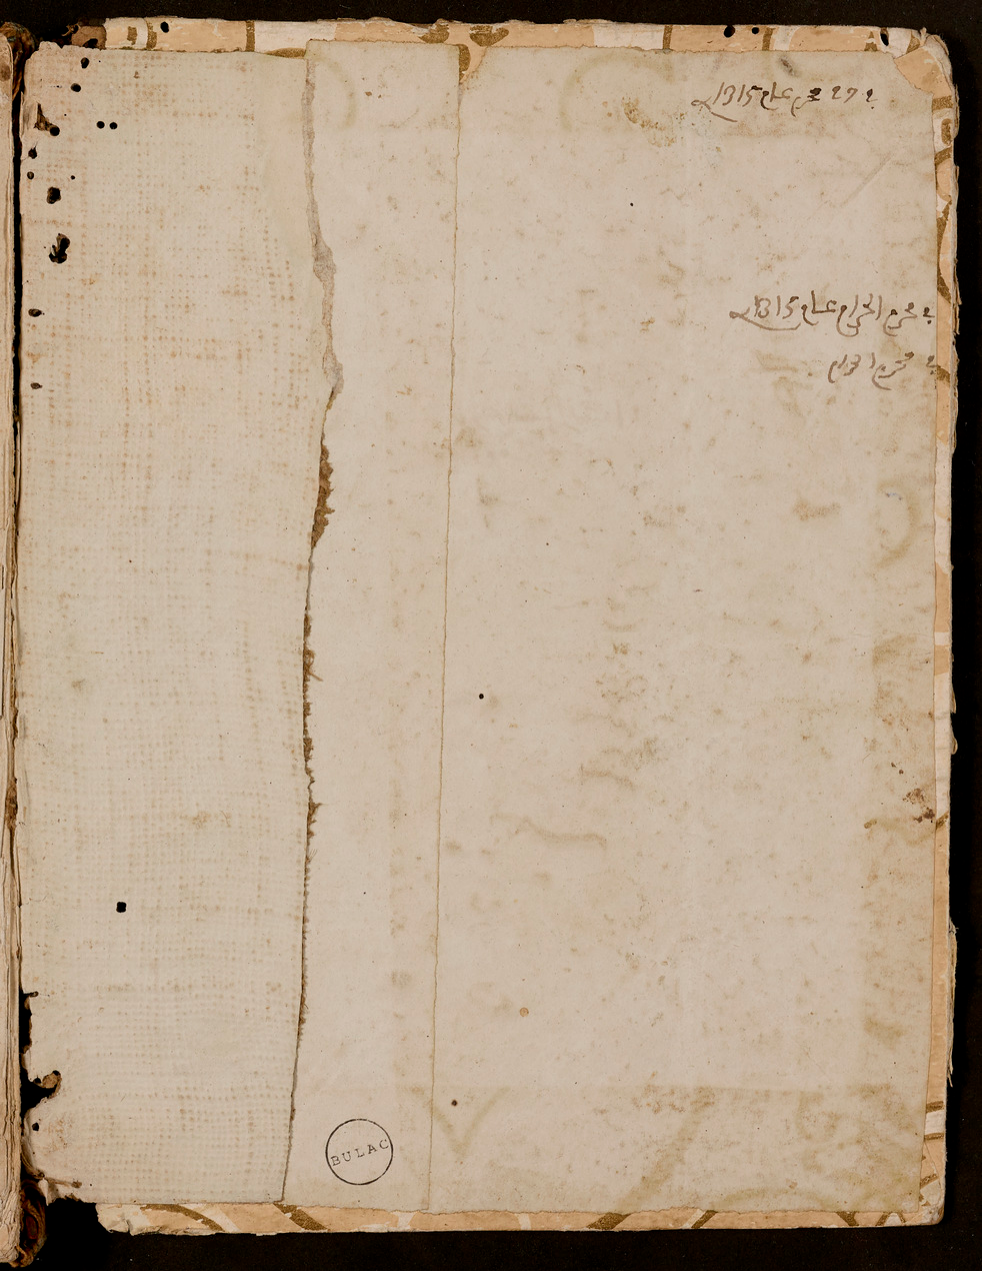 27 محرم عام 1315
محرم الحرام عام 1315
محرم الحرام
BULAC